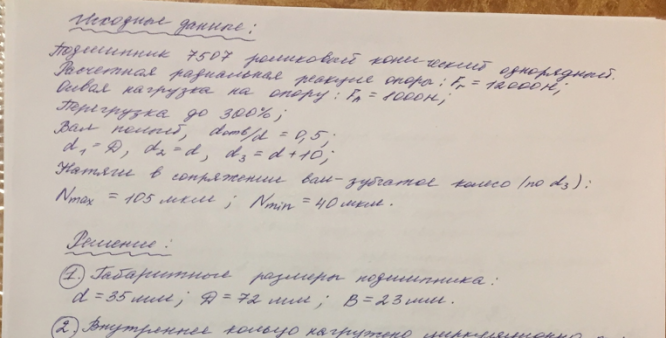 Исходные данные:
Подшипник 7507 роликовый конический однорядный.
Расчетная радиальная реакция опоры: Fr = 12000Н;
Осевая нагрузка на опору: FA = 1000Н;
Перегрузка до 300%;
Вал полый, dотв/d = 0,5;
d1 = D, d2 = d, d3 = d+10;
Натяги в сопряжении вал-зубчатое колесо (по d3):
Nmax = 105 мкм; Nmin = 40 мкм.
Решение:
1. Габаритные размеры подшипника:
d = 35 мм; D = 72 мм; B = 23 мм.
2. Внутреннее кольцо нагружено циркуляционно